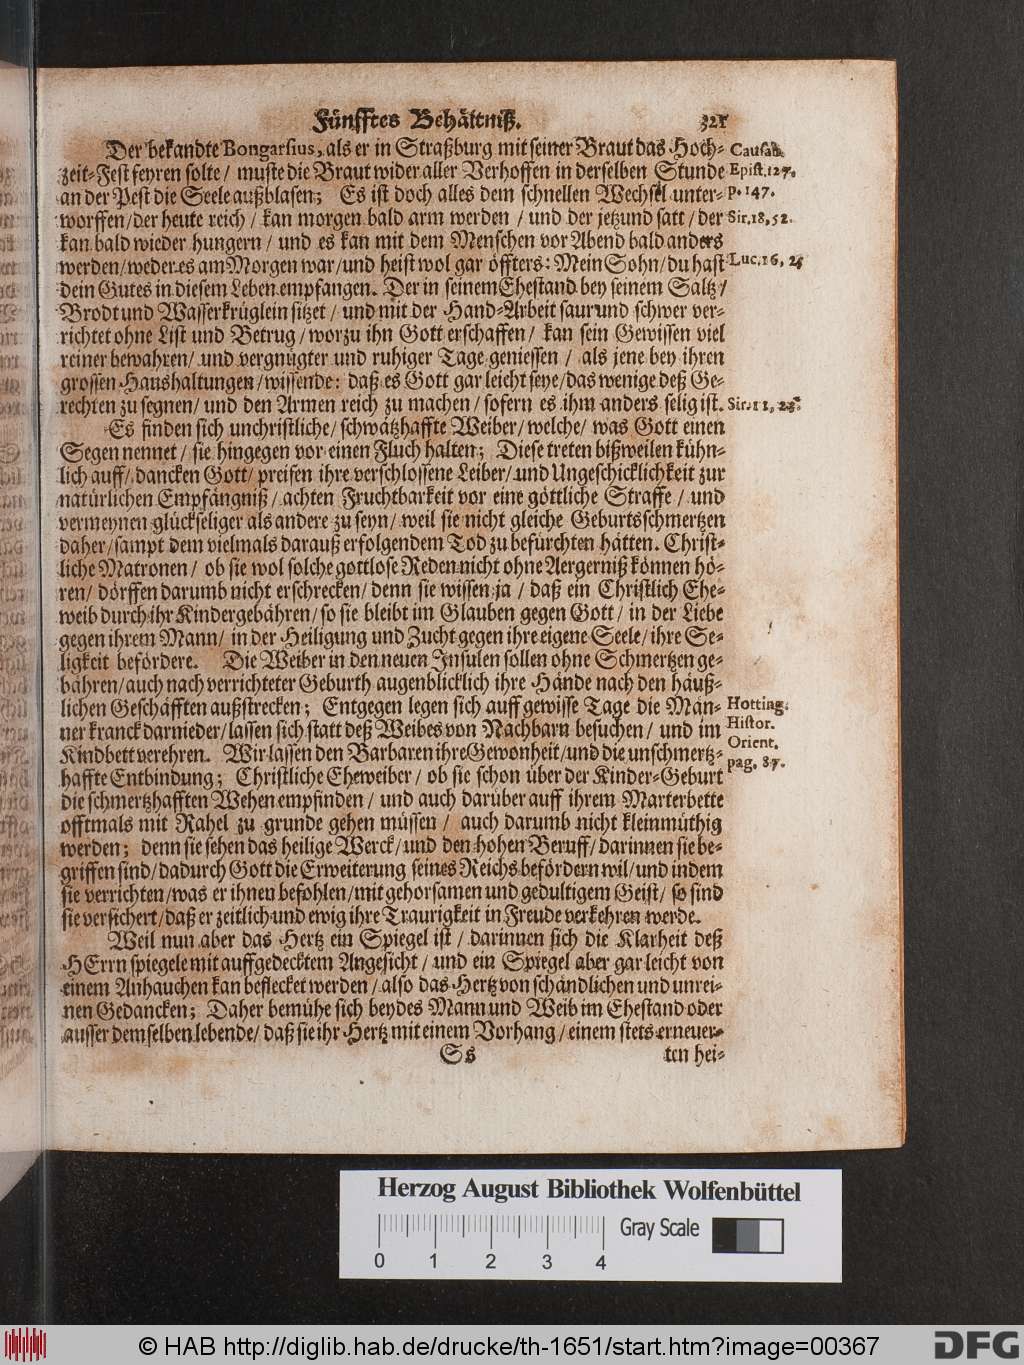 Fünfftes Behältniß. 321
Der bekandte Bongarsius, als er in Straßburg mit seiner Braut das Hoch-
zeit-Fest feyren solte / muste die Braut wider aller Verhoffen in derselben Stunde
an der Pest die Seele außblasen; Es ist doch alles dem schnellen Wechsel unter-
worffen / der heute reich / kan morgen bald arm werden / und der jetzund satt / der
kan bald wieder hungern / und es kan mit dem Menschen vor Abend bald anders
werden / weder es am Morgen war / und heist wol gar öffters: Mein Sohn / du hast
dein Gutes in diesem Leben empfangen. Der in seinem Ehestand bey seinem Saltz /
Brodt und Wasserkrüglein sitzet / und mit der Hand-Arbeit saur und schwer ver-
richtet ohne List und Betrug / worzu ihn Gott erschaffen / kan sein Gewissen viel
reiner bewahren / und vergnügter und ruhiger Tage geniessen / als jene bey ihren
grossen Haushaltungen / wissende: daß es Gott gar leicht seye / das wenige deß Ge-
rechten zu segnen / und den Armen reich zu machen / sofern es ihm anders selig ist.
Es finden sich unchristliche / schwätzhaffte Weiber / welche / was Gott einen
Segen nennet / sie hingegen vor einen Fluch halten; Diese treten bißweilen kühn-
lich auff / dancken Gott / preisen ihre verschlossene Leiber / und Ungeschicklichkeit zur
natürlichen Empfängniß / achten Fruchtbarkeit vor eine göttliche Straffe / und
vermeynen glückseliger als andere zu seyn / weil sie nicht gleiche Geburtsschmertzen
daher / sampt dem vielmals darauß erfolgendem Tod zu befürchten hätten. Christ-
liche Matronen / ob sie wol solche gottlose Reden nicht ohne Aergerniß können hö-
ren / dörffen darumb nicht erschrecken / denn sie wissen ja / daß ein Christlich Ehe-
weib durch ihr Kindergebähren / so sie bleibt im Glauben gegen Gott / in der Liebe
gegen ihrem Mann / in der Heiligung und Zucht gegen ihre eigene Seele / ihre Se-
ligkeit befördere. Die Weiber in den neuen Insulen sollen ohne Schmertzen ge-
bähren / auch nach verrichteter Geburth augenblicklich ihre Hände nach den häuß-
lichen Geschäfften außstrecken; Entgegen legen sich auff gewisse Tage die Män-
ner kranck darnieder / lassen sich statt deß Weibes von Nachbarn besuchen / und im
Kindbett verehren. Wir lassen den Barbaren ihre Gewonheit / und die unschmertz-
haffte Entbindung; Christliche Eheweiber / ob sie schon über der Kinder-Geburt
die schmertzhafften Wehen empfinden / und auch darüber auff ihrem Marterbette
offtmals mit Rahel zu grunde gehen müssen / auch darumb nicht kleinmüthig
werden; denn sie sehen das heilige Werck / und den hohen Beruff / darinnen sie be-
griffen sind / dadurch Gott die Erweiterung seines Reichs befördern wil / und indem
sie verrichten / was er ihnen befohlen / mit gehorsamen und gedultigem Geist / so sind
sie versichert / daß er zeitlich und ewig ihre Traurigkeit in Freude verkehren werde.
Weil nun aber das Hertz ein Spiegel ist / darinnen sich die Klarheit deß
HErrn spiegele mit auffgedecktem Angesicht / und ein Spiegel aber gar leicht von
einem Anhauchen kan beflecket werden / also das Hertz von schändlichen und unrei-
nen Gedancken; Daher bemühe sich beydes Mann und Weib im Ehestand oder
ausser demselben lebende / daß sie ihr Hertz mit einem Vorhang / einem stets erneuer-
Ss ten hei-
Causab.
Epist. 127.
p. 147.
Sir. 18, 52.
Luc. 16, 25
Sir. 11, 23.
Hotting.
Histor.
Orient.
pag. 87.
Herzog August Bibliothek Wolfenbüttel
0 1 2 3 4
Gray Scale
© HAB http://diglib.hab.de/drucke/th-1651/start.htm?image=00367
DFG